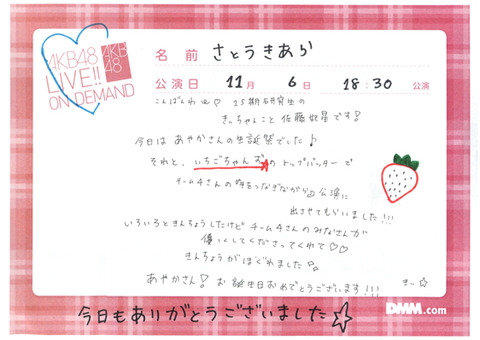 AKB48
LIVE!!
ON DEMAND
AKB
48
名前 さとうきあら
公演日 11月 6日 18:30 公演
こんばんわ 15期研究生の
きぃちゃんこと 佐藤妃星です!
今日は あやかさんの生誕祭でした♪
それと、いちごちゃんずのトップバッターで
チーム4さんの 公演に
出させてもらいました!!!
いろいろときんちょうしたけど チーム4さんのみなさんが
優しくしてくださってくれて♡♡
きんちょうがほぐれました☆☆
あやかさん! お誕生日おめでとうございます!!! きぃ☆
今日もありがとうございました☆
DMM.com